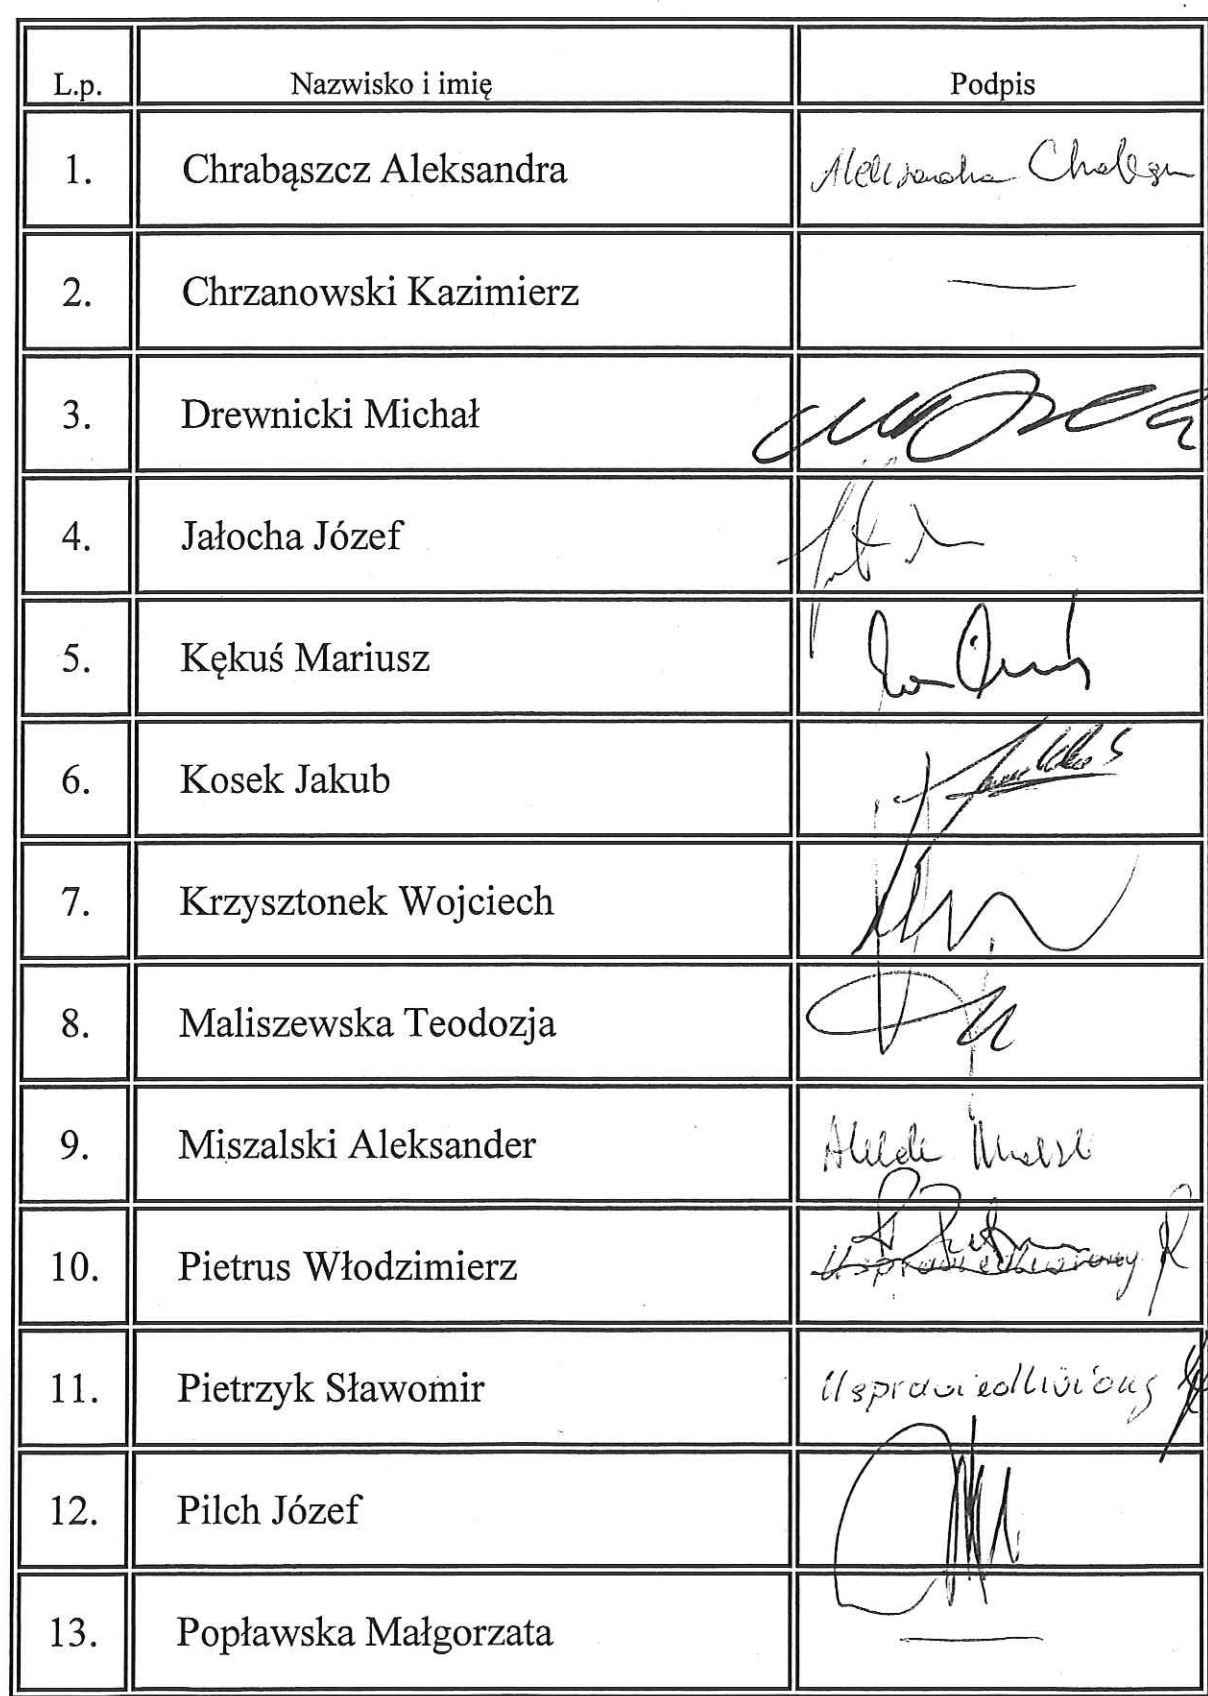 L.p. Nazwisko i imię Podpis
1. Chrabąszcz Aleksandra Aleksandra
2. Chrzanowski Kazimierz —
3. Drewnicki Michał
4. Jałocha Józef
5. Kękuś Mariusz
6. Kosek Jakub
7. Krzysztonek Wojciech
8. Maliszewska Teodozja
9. Miszalski Aleksander
10. Pietrus Włodzimierz Usprawiedliwiony
11. Pietrzyk Sławomir Usprawiedliwiony
12. Pilch Józef
13. Popławska Małgorzata —